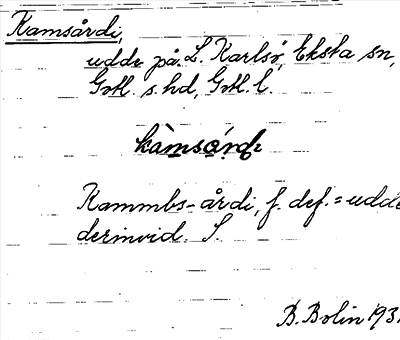 Kamsårdi,
udde på L. Karlsö, Eksta sn,
Gotl. s. hd, Gotl. l.
kàmsá̄rdı
Kammbs-årdi, f. def. = udde
derinvid. S.
B. Bolin 193